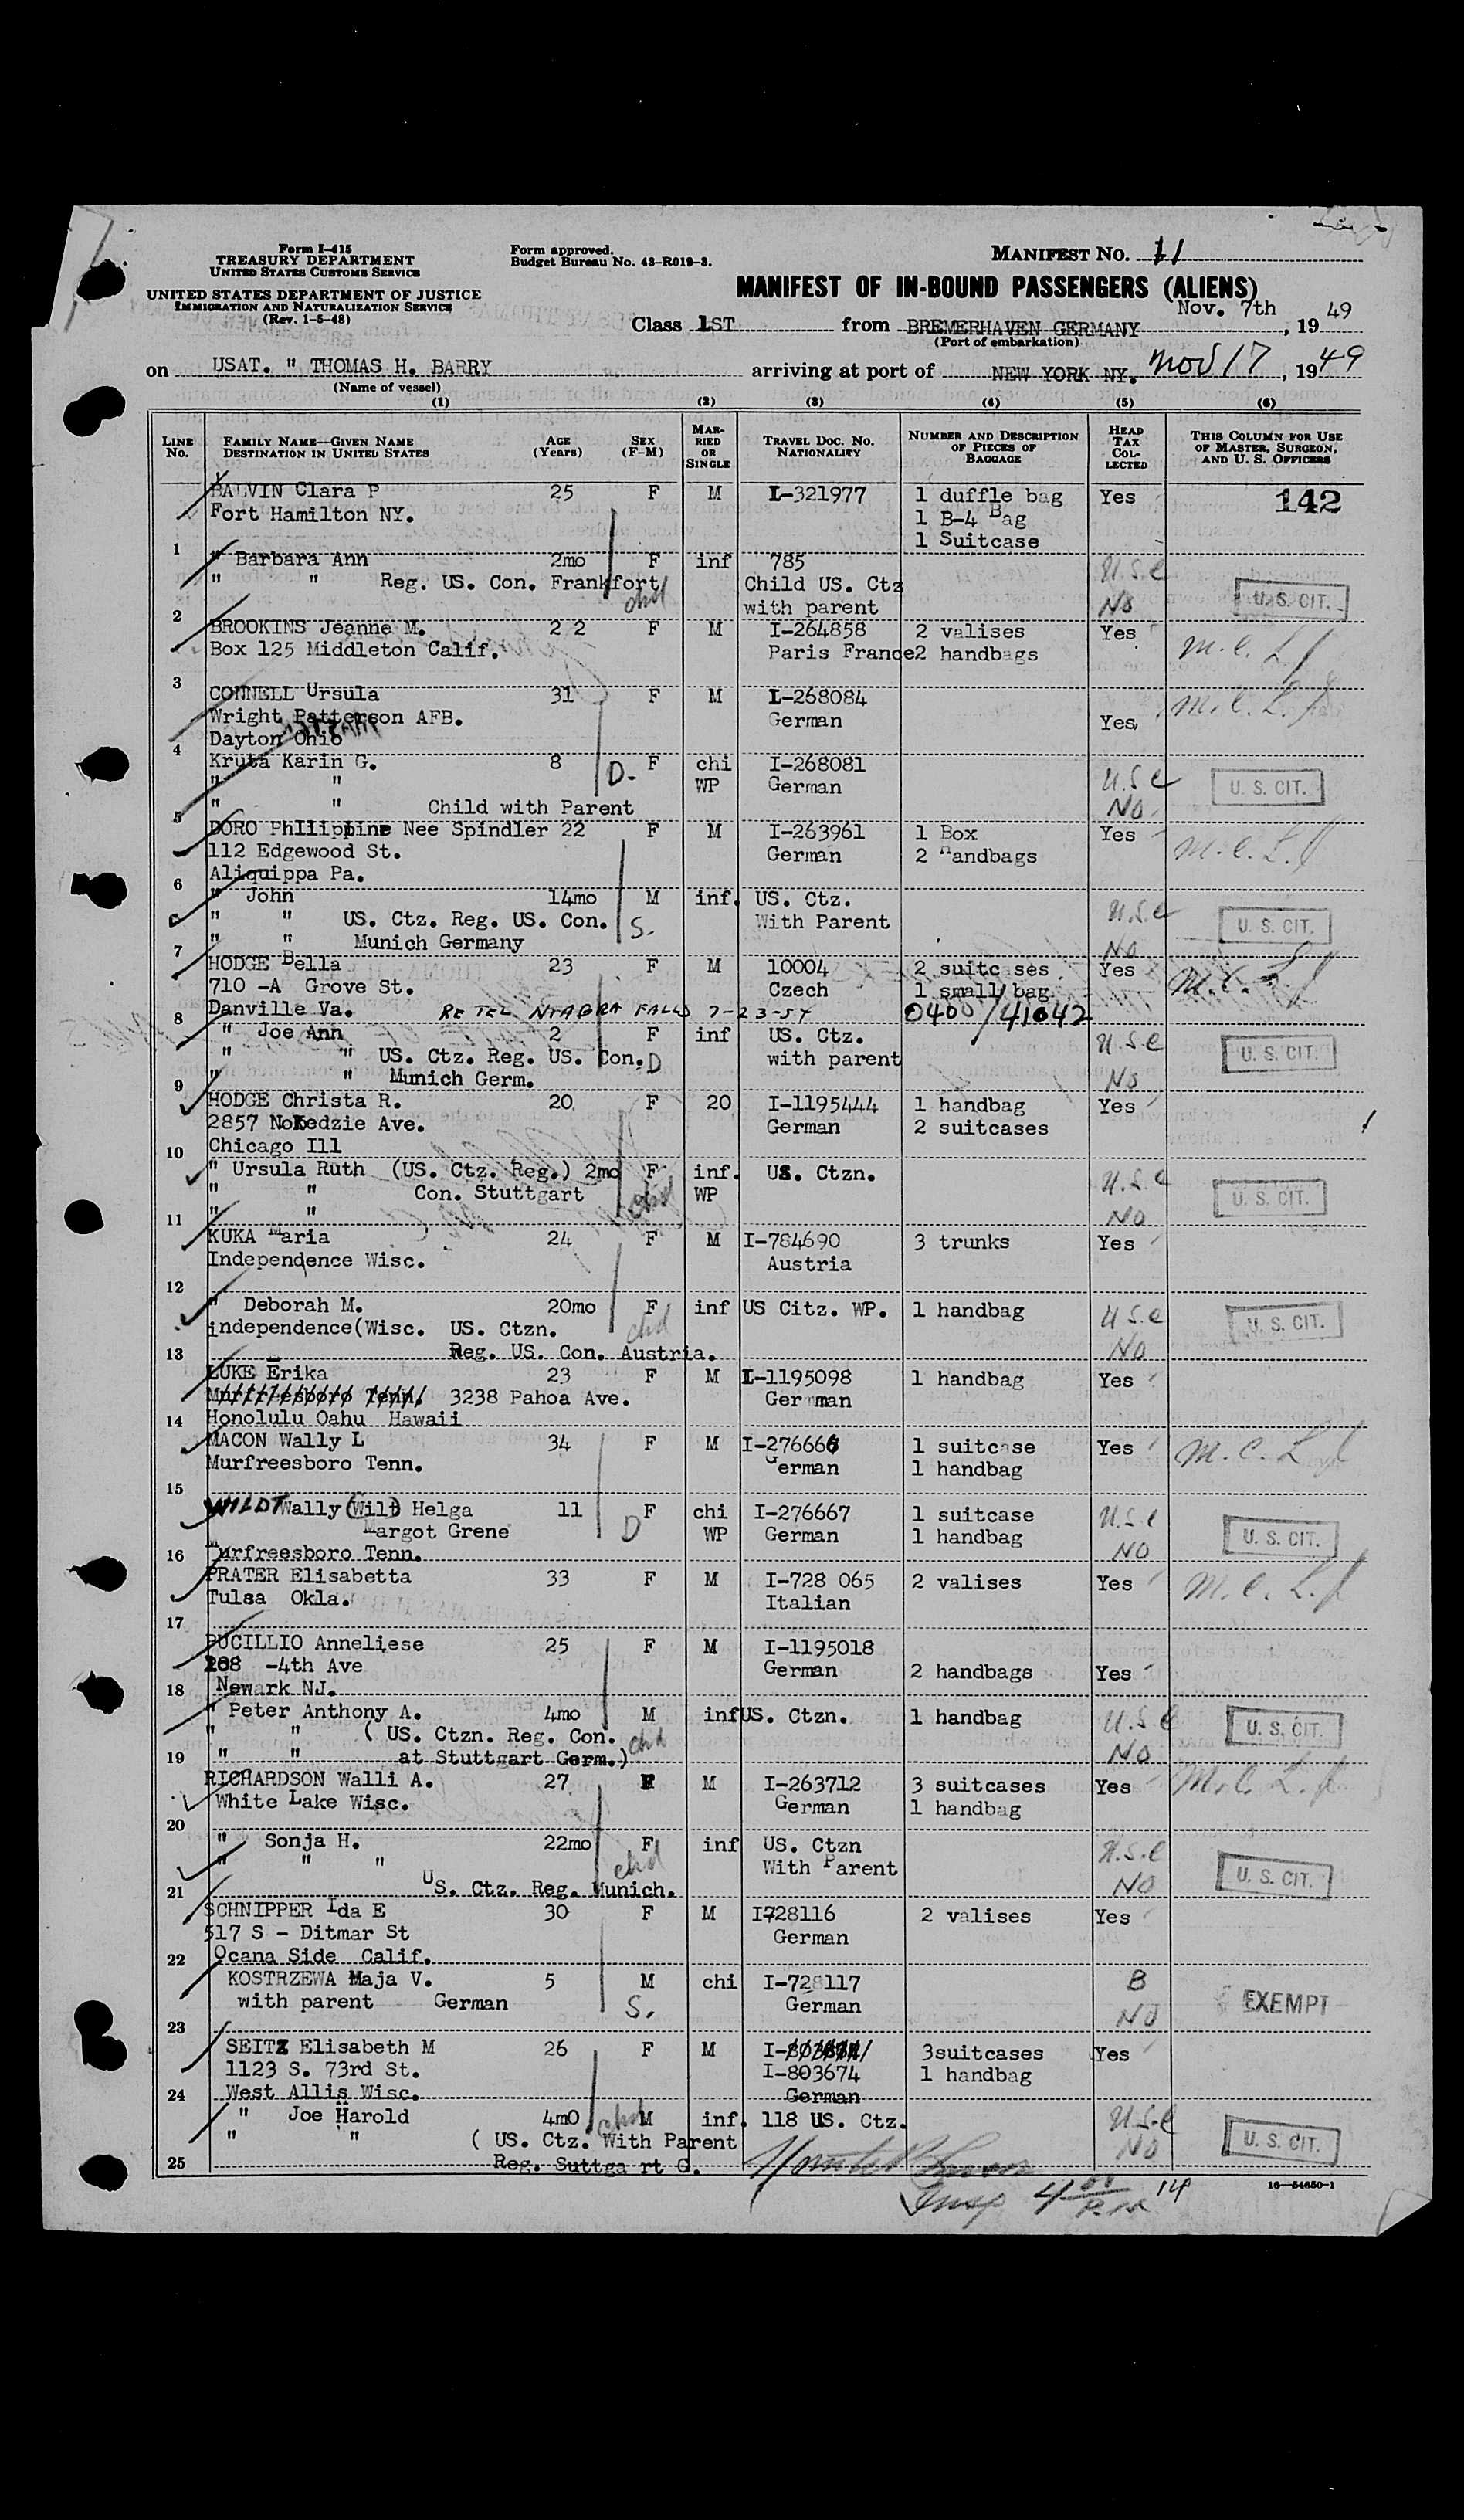 Form I-415
TREASURY DEPARTMENT
UNITED STATES CUSTOMS SERVICE
UNITED STATES DEPARTMENT OF JUSTICE
IMMIGRATION AND NATURALIZATION SERVICE
(Rev. 1-5-48)
Form approved.
Budget Bureau No. 43-R019-3.
MANIFEST NO. 11
MANIFEST OF IN-BOUND PASSENGERS (ALIENS)
Class 1ST from BREMERHAVEN GERMANY Nov. 7th, 19 49
(Port of embarkation)
on USAT. " THOMAS H. BARRY arriving at port of NEW YORK NY. Nov 17, 1949
(Name of vessel)
(1) (2) (3) (4) (5) (6)
LINE No. FAMILY NAME—GIVEN NAME DESTINATION IN UNITED STATES AGE (Years) SEX (F-M) MARRIED OR SINGLE TRAVEL DOC. NO. NATIONALITY NUMBER AND DESCRIPTION OF PIECES OF BAGGAGE HEAD TAX COLLECTED THIS COLUMN FOR USE OF MASTER, SURGEON, AND U. S. OFFICERS
BALVIN Clara P 25 F M I-321977 1 duffle bag Yes 142
Fort Hamilton NY. 1 B-4 Bag
1 1 Suitcase
" Barbara Ann 2mo F inf 785 U.S.C
" " Reg. US. Con. Frankfort chd Child US. Ctz U. S. CIT.
2 with parent No
BROOKINS Jeanne M. 2 2 F M I-264858 2 valises Yes
Box 125 Middleton Calif. Paris France 2 handbags M.C. L.
3
CONNELL Ursula 31 F M I-268084 M.C. L.
Wright Patterson AFB. German Yes
4 Dayton Ohio
Kruta Karin G. 8 D. F chi I-268081 U.S.C
" " WP German U. S. CIT.
5 " " Child with Parent No
DORO Philippine Nee Spindler 22 F M I-263961 1 Box Yes
112 Edgewood St. German 2 Handbags M.C. L.
6 Aliquippa Pa.
" John 14mo M inf. US. Ctz. U.S.C
" " US. Ctz. Reg. US. Con. S. With Parent U. S. CIT.
7 " " Munich Germany No
HODGE Bella 23 F M 10004 2 suitcases Yes
710 -A Grove St. Czech 1 small bag M.C.
8 Danville Va. RE TEL NIAGRA FALLS 7-23-54 0400/41042
" Joe Ann 2 F inf US. Ctz. U.S.C
" " US. Ctz. Reg. US. Con. D with parent U. S. CIT.
9 " " Munich Germ. No
HODGE Christa R. 20 F 20 I-1195444 1 handbag Yes
2857 No Kedzie Ave. German 2 suitcases
10 Chicago Ill
" Ursula Ruth (US. Ctz. Reg.) 2mo F inf. US. Ctzn. U.S.C
" " Con. Stuttgart chd WP U. S. CIT.
11 " " No
KUKA Maria 24 F M I-784690 3 trunks Yes
Independence Wisc. Austria
12
" Deborah M. 20mo F inf US Citz. WP. 1 handbag U.S.C
independence(Wisc. US. Ctzn. chd U. S. CIT.
13 Reg. US. Con. Austria. No
LUKE Erika 23 F M I-1195098 1 handbag Yes
Murfreesboro Tenn. 3238 Pahoa Ave. German
14 Honolulu Oahu Hawaii
MACON Wally L 34 F M I-276666 1 suitcase Yes
Murfreesboro Tenn. German 1 handbag M.C. L.
15
WILDT Wally (Wilt) Helga 11 F chi I-276667 1 suitcase U.S.C
Margot Grene D WP German 1 handbag U. S. CIT.
16 Murfreesboro Tenn. No
PRATER Elisabetta 33 F M I-728 065 2 valises Yes
Tulsa Okla. Italian M.C. L.
17
PUCILLIO Anneliese 25 F M I-1195018
208 -4th Ave German 2 handbags Yes
18 Newark NJ.
" Peter Anthony A. 4mo M inf US. Ctzn. 1 handbag U.S.C
" " ( US. Ctzn. Reg. Con. chd U. S. CIT.
19 " " at Stuttgart Germ.) No
RICHARDSON Walli A. 27 F M I-263712 3 suitcases Yes M.C. L.
White Lake Wisc. German 1 handbag
20
" Sonja H. 22mo F inf US. Ctzn U.S.C
" " " chd With Parent U. S. CIT.
21 US. Ctz. Reg. Munich. No
SCHNIPPER Ida E 30 F M I728116 2 valises Yes
517 S - Ditmar St German
22 Ocana Side Calif.
KOSTRZEWA Maja V. 5 M chi I-728117 B
with parent German S. German No EXEMPT
23
SEITZ Elisabeth M 26 F M 3suitcases Yes
1123 S. 73rd St. I-803674 1 handbag
24 West Allis Wisc. German
" Joe Harold 4mo chd M inf. 118 US. Ctz. U.S.C
" " ( US. Ctz. With Parent No U. S. CIT.
25 Reg. Suttgart G.
Insp 4 00 P.M. 14
16—54650-1